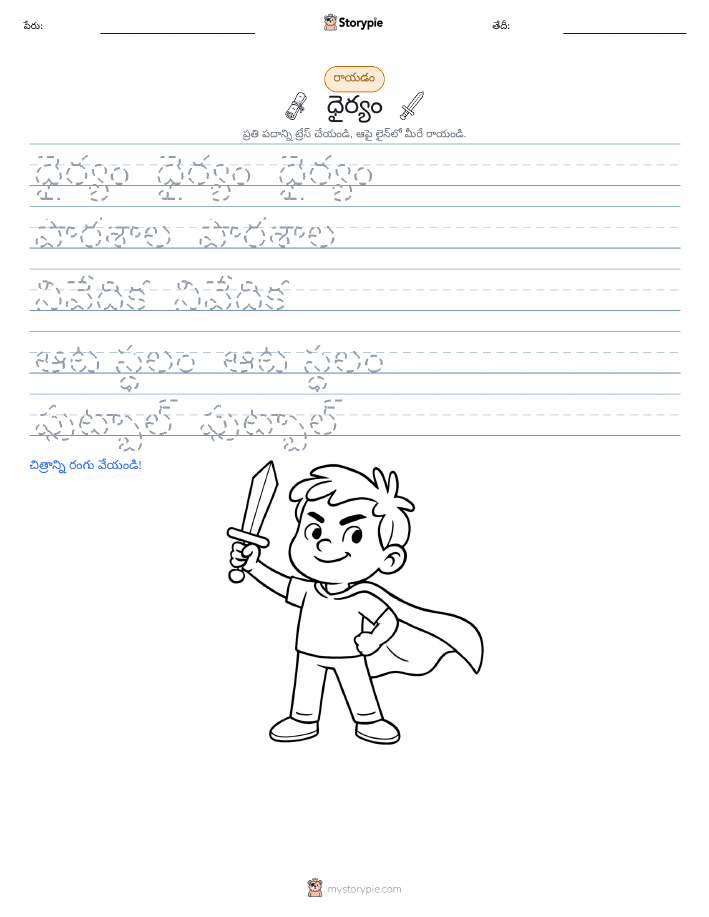 పేరు:
Storypie
తేదీ:
రాయడం
ధైర్యం
ప్రతి పదాన్ని ట్రేస్ చేయండి, ఆపై లైన్‌లో మీరే రాయండి.
ధైర్యం ధైర్యం ధైర్యం
పాఠశాల పాఠశాల
నివేదిక నివేదిక
ఆట స్థలం ఆట స్థలం
ఫుట్బాల్ ఫుట్బాల్
చిత్రాన్ని రంగు వేయండి!
mystorypie.com